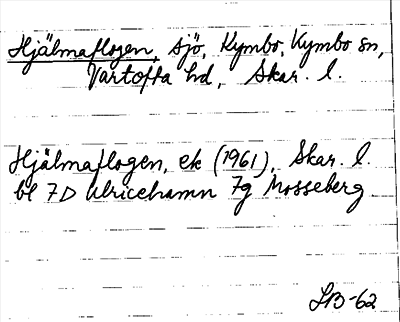 Hjälmaflogen, sjö, Kymbo, Kymbo sn,
Vartofta hd, Skar. l.
Hjälmaflogen, ek (1961), Skar. l.
bl 7D Ulricehamn 7g Mosseberg
LB-62